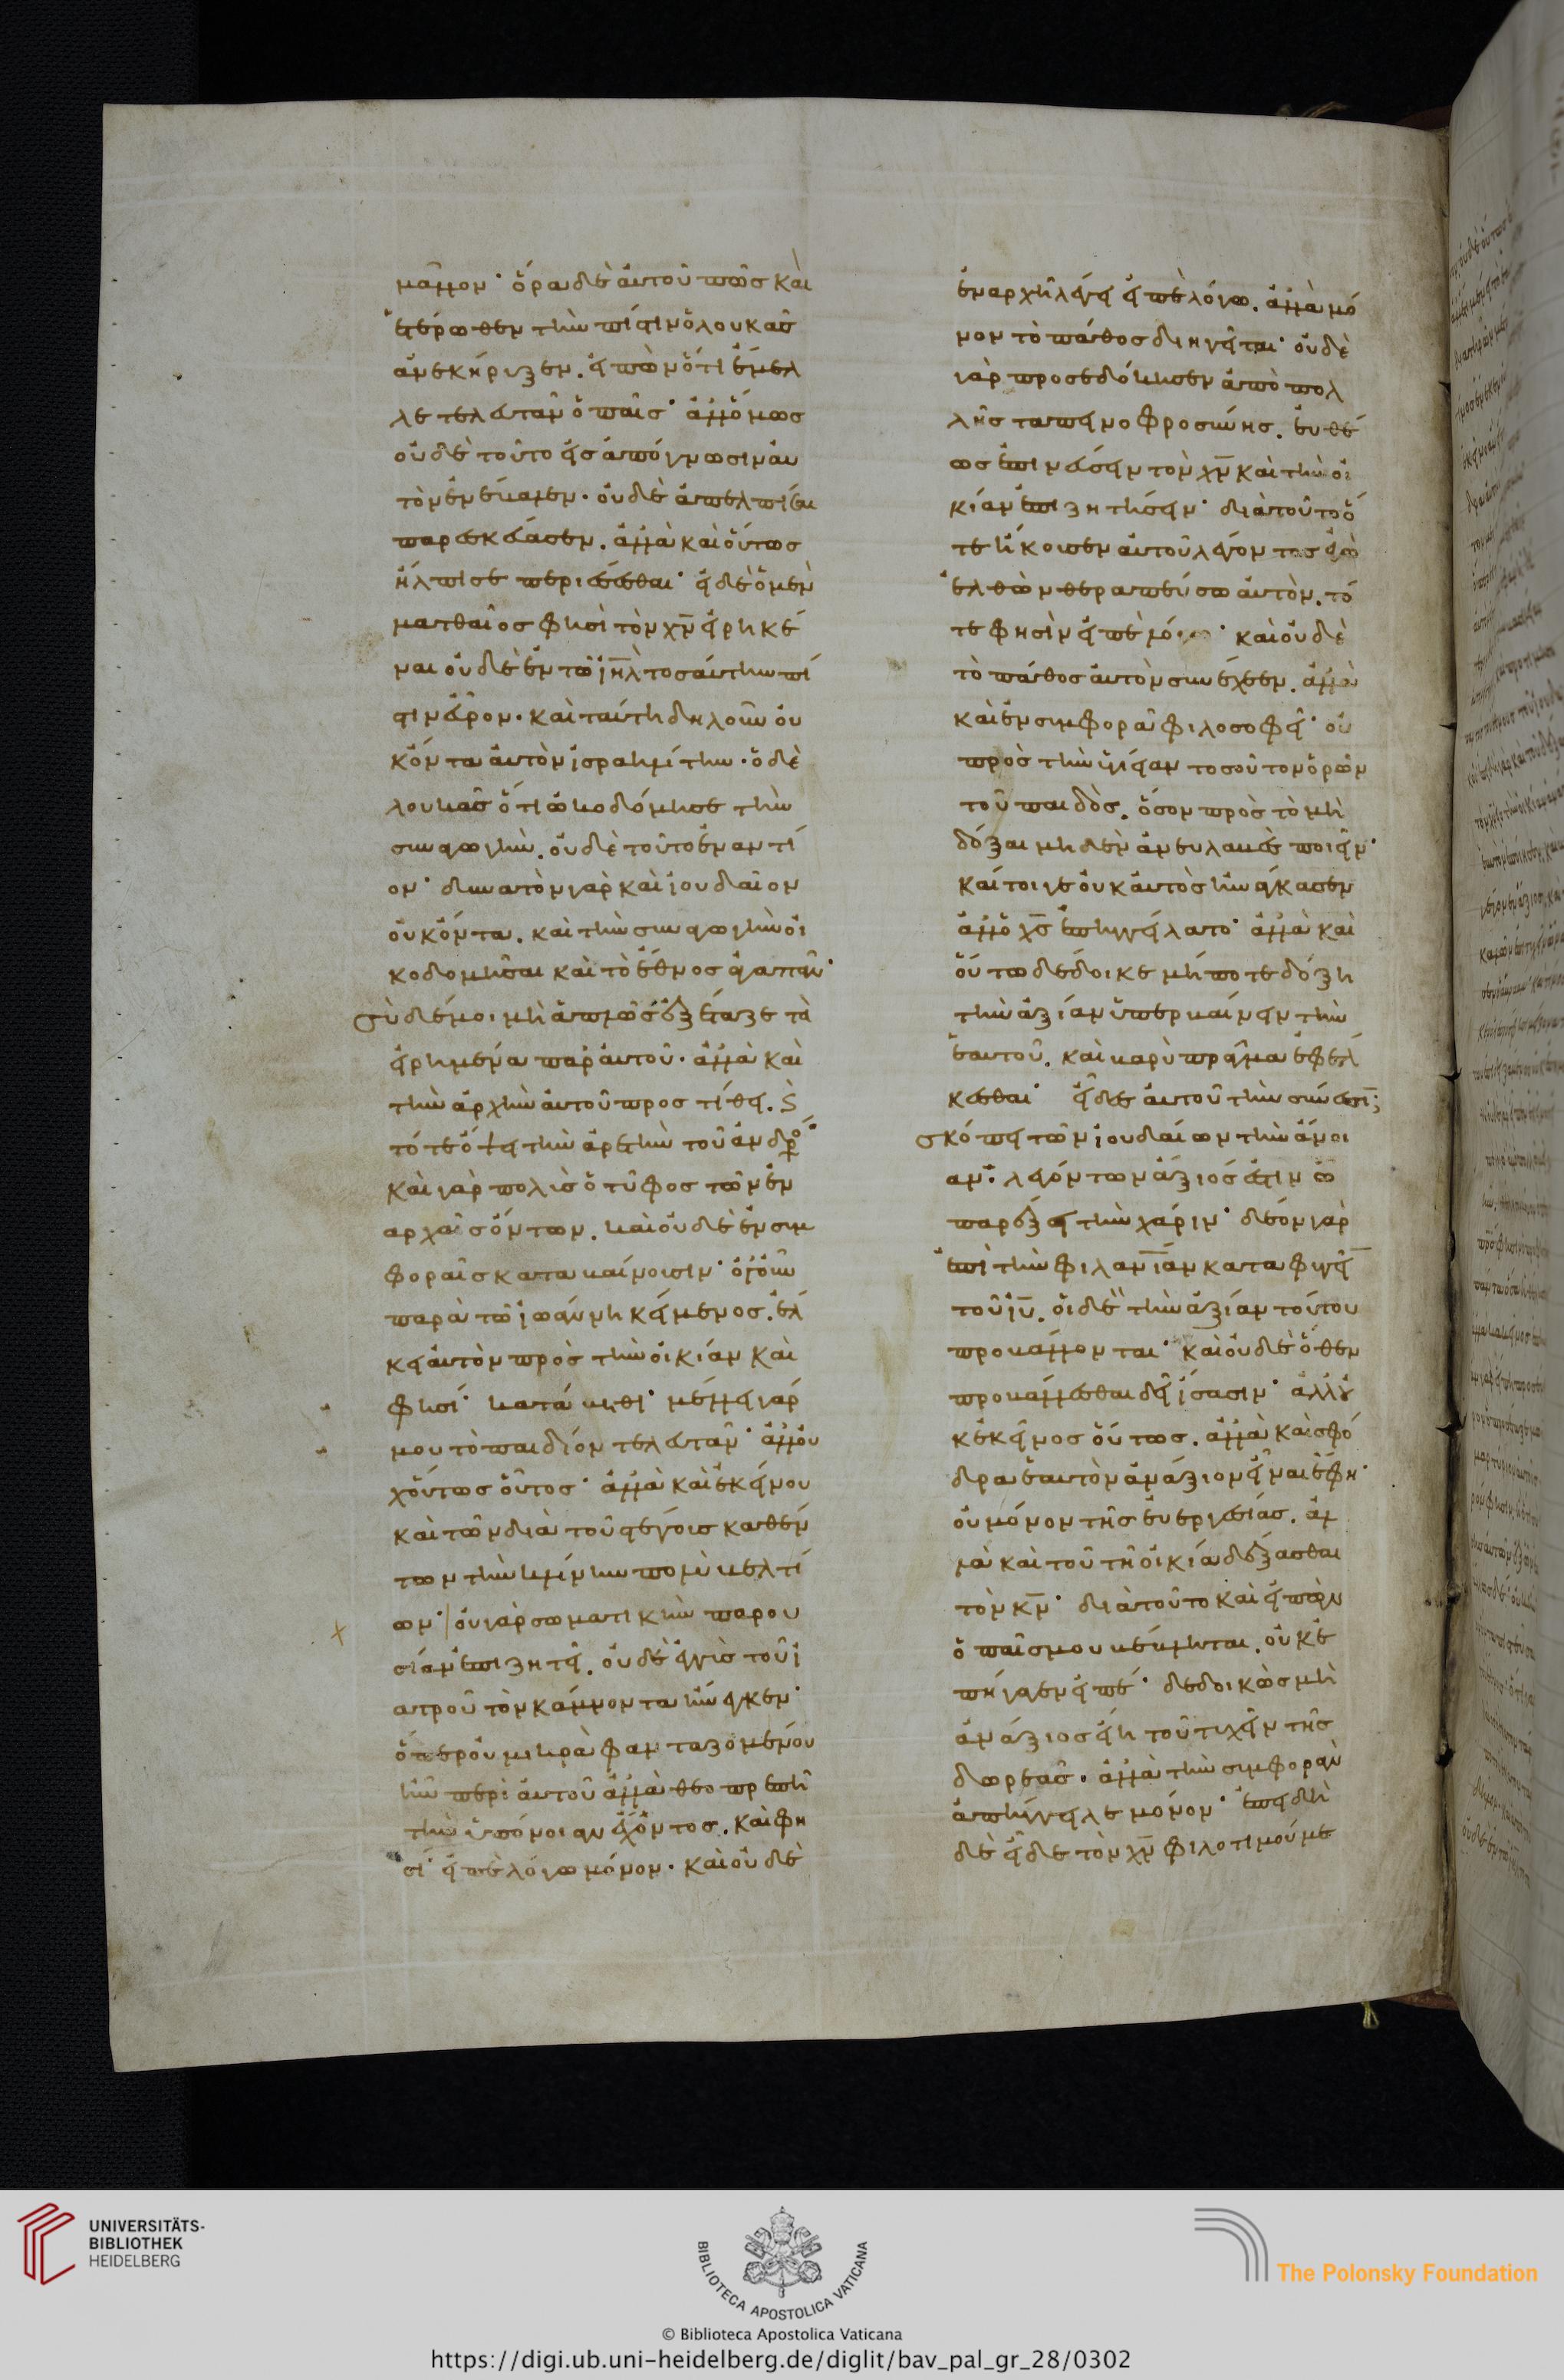 μᾶλλον· ὅρα δὲ αὐτοῦ πῶς καὶ
ἑτέρωθεν τὴν πίστιν ὁ λουκᾶς
ἀνεκήρυξεν. εἰπὼν ὅτι ἔμελ
λε τελευτᾶν ὁ παῖς· ἀλλ' ὅμως
οὐδὲ τοῦτο εἰς ἀπόγνωσιν αὐ
τὸν ἐνέβαλεν. οὐδὲ ἀπελπίσαι
παρεσκεύασεν. ἀλλὰ καὶ οὕτως
ἤλπισε περιέσεσθαι· εἰ δὲ ὁ μὲν
ματθαῖος φησὶ τὸν χν̅ εἰρηκέ
ναι οὐδὲ ἐν τῶ ιηλ̅ τοσαύτην πί
στιν εὗρον. καὶ ταύτη δηλοῦν οὐ
κ ὄντα αὐτὸν ἰσραηλίτην. ὁ δὲ
λουκᾶς ὅτι ὠκοδόμησε τὴν
συναγωγὴν. οὐδὲ τοῦτο ἐναντί
ον· δυνατὸν γὰρ καὶ ἰουδαῖον
οὐκ ὄντα. καὶ τὴν συναγωγὴν οἰ
κοδομῆσαι καὶ τὸ ἔθνος ἀγαπᾶν·
σὺ δέ μοι μὴ ἁπλῶς ἐξέταζε τὰ
εἰρημένα παρ' αὐτοῦ. ἀλλὰ καὶ
τὴν ἀρχὴν αὐτοῦ προστίθει. ϗ
τότε ὄψει τὴν ἀρετὴν τοῦ ἀνδρό
καὶ γὰρ πολὺς ὁ τῦφος τῶν ἐν
ἀρχαῖς ὄντων. καὶ οὐδὲ ἐν συμ
φοραῖς καταβαίνουσιν· ὁ γοῦν
παρὰ τῶ ἰωάννη κείμενος. ἕλ
κει αὐτὸν πρὸς τὴν οἰκίαν καὶ
φησί· κατάβηθι· μέλλει γάρ
μου τὸ παιδίον τελευτᾶν· ἀλλ' οὐ
χ οὕτως οὗτος· ἀλλὰ καὶ ἐκείνου
καὶ τῶν διὰ τοῦ στέγους καθέν
των τὴν κλίνην πολὺ βελτί
ων· οὐ γὰρ σωματικὴν παρου
σίαν ἐπιζητεῖ. οὐδὲ ἐγγὺς τοῦ ἰ
ατροῦ τὸν κάμνοντα ἤνεγκεν·
ὅπερ οὐ μικρὰ φανταζομένου
ἦν περὶ αὐτοῦ ἀλλὰ θεοπρεπῆ
τὴν ὑπόνοιαν ἔχοντος. καὶ φη
σί· εἰπὲ λόγω μόνον. καὶ οὐδὲ
ἐν ἀρχῆ λέγει εἰπὲ λόγω. ἀλλὰ μό
νον τὸ πάθος διηγεῖται· οὐδὲ
γὰρ προσεδόκησεν ἀπὸ πολ
λῆς ταπεινοφροσύνης. εὐθέ
ως ἐπινεύσειν τὸν χν̅ καὶ τὴν οἰ
κίαν ἐπιζητήσειν· διὰ τοῦτο ὅ
τε ἤκουσεν αὐτοῦ λέγοντος ἐγὼ
ἐλθὼν θεραπεύσω αὐτὸν. τό
τε φησὶν εἰπὲ λόγω· καὶ οὐδὲ
τὸ πάθος αὐτὸν συνέχεεν. ἀλλὰ
καὶ ἐν συμφορᾶ φιλοσοφεῖ· οὐ
πρὸς τὴν ὑγίειαν τοσοῦτον ὁρῶν
τοῦ παιδὸς. ὅσον πρὸς τὸ μὴ
δόξαι μηδὲν ἀνευλαβὲς ποιεῖν·
καίτοιγε οὐκ αὐτὸς ἠνάγκασεν
ἀλλ' ὁ χς̅ ἐπηγγείλατο· ἀλλὰ καὶ
οὕτω δέδοικε μήποτε δόξη
τὴν ἀξίαν ὑπερβαίνειν τὴν
ἑαυτοῦ. καὶ βαρὺ πρᾶγμα ἐφέλ
κεσθαι· εἶδες αὐτοῦ τὴν σύνεσιν;
σκόπει τῶν ἰουδαίων τὴν ἄνοι
αν· λεγόντων ἄξιός ἐστιν ὧ
παρέξει τὴν χάριν· δέον γὰρ
ἐπὶ τὴν φιλανι̅αν καταφυγεῖν
τοῦ ιυ̅. οἱ δὲ τὴν ἀξίαν τούτου
προβάλλονται· καὶ οὐδὲ ὅθεν
προβάλλεσθαι δεῖ ἴσασιν· ἀλλ' οὐ
κ ἐκεῖνος οὕτως. ἀλλὰ καὶ σφό
δρα ἑαυτὸν ἀνάξιον εἶναι ἔφη·
οὐ μόνον τῆς εὐεργεσίας. ἀλ
λὰ καὶ τοῦ τῆ οἰκία δέξασθαι
τὸν κν̅· διὰ τοῦτο καὶ εἰπὼν
ὁ παῖς μου βέβληται. οὐκ ἐ
πήγαγεν εἰπέ· δεδοικὼς μὴ
ἀνάξιος εἴη τοῦ τυχεῖν τῆς
δωρεᾶς. ἀλλὰ τὴν συμφορὰν
ἀπήγγειλε μόνον· ἐπειδὴ
δὲ εἶδε τὸν χν̅ φιλοτιμούμε
UNIVERSITÄTS-
BIBLIOTHEK
HEIDELBERG
BIBLIOTECA APOSTOLICA VATICANA
The Polonsky Foundation
© Biblioteca Apostolica Vaticana
https://digi.ub.uni-heidelberg.de/diglit/bav_pal_gr_28/0302